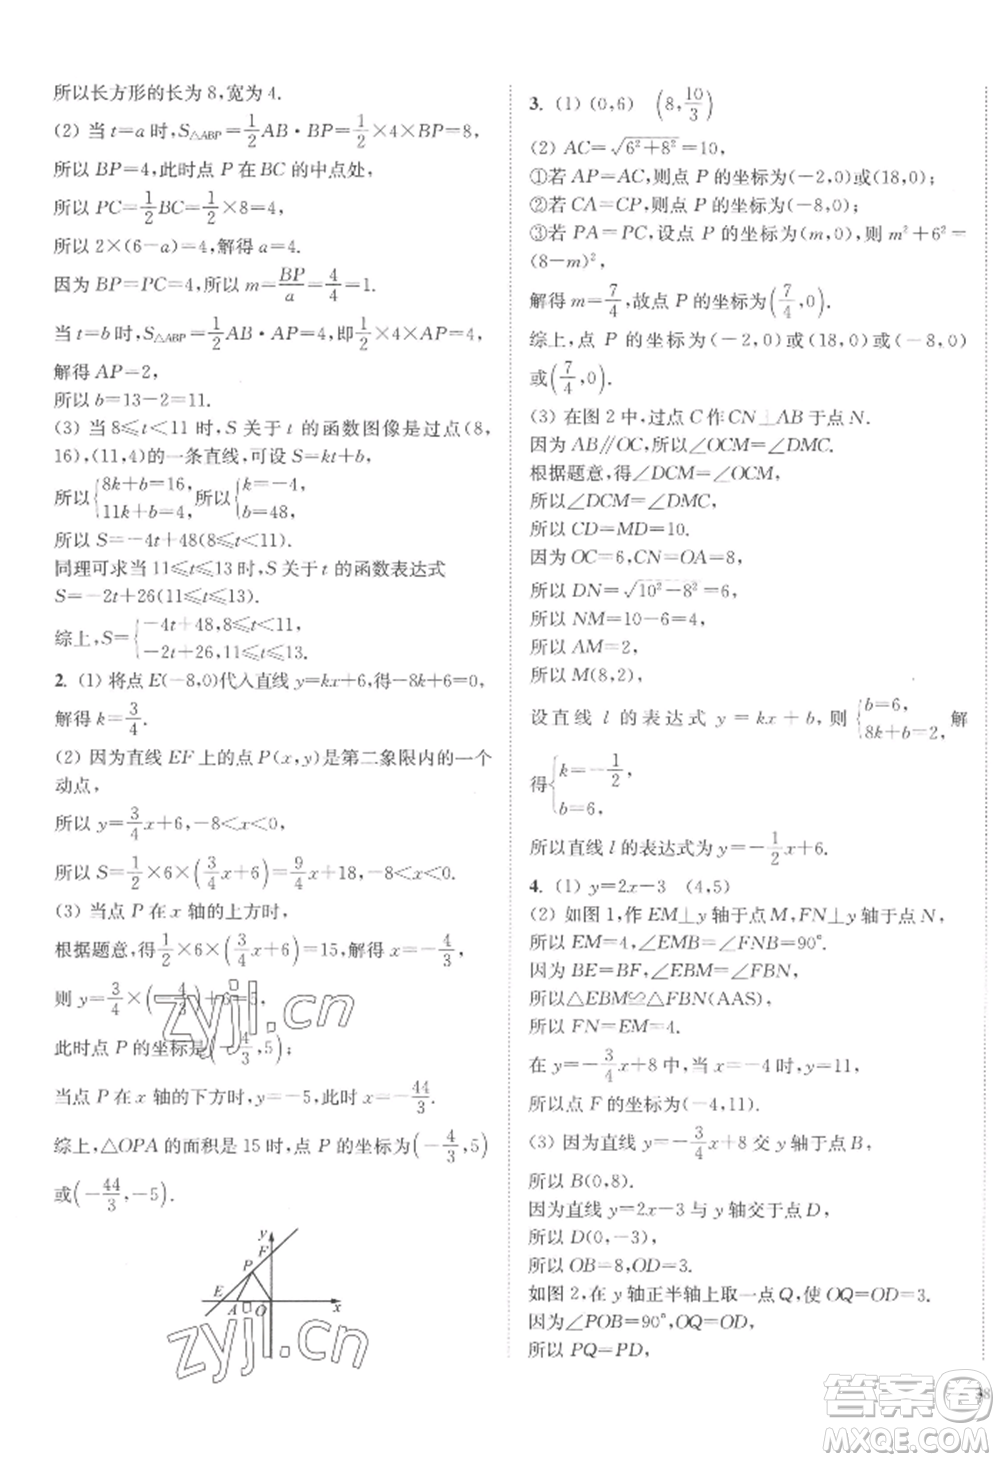 所以长方形的长为 8,宽为 4.
(2) 当 t=a 时,S△ABP=1/2AB·BP=1/2×4×BP=8,
所以 BP=4,此时点 P 在 BC 的中点处,
所以 PC=1/2BC=1/2×8=4,
所以 2×(6-a)=4,解得 a=4.
因为 BP=PC=4,所以 m=BP/a=4/4=1.
当 t=b 时,S△ABP=1/2AB·AP=4,即1/2×4×AP=4,
解得 AP=2,
所以 b=13-2=11.
(3) 当 8⩽t<11 时,S 关于 t 的函数图像是过点(8,
16),(11,4)的一条直线,可设 S=kt+b,
所以{8k+b=16, 11k+b=4,所以{k=-4, b=48,
所以 S=-4t+48(8⩽t<11).
同理可求当 11⩽t⩽13 时,S 关于 t 的函数表达式
S=-2t+26(11⩽t⩽13).
综上,S={-4t+48,8⩽t<11, -2t+26,11⩽t⩽13.
2. (1) 将点 E(-8,0)代入直线 y=kx+6,得-8k+6=0,
解得 k=3/4.
(2) 因为直线 EF 上的点 P(x,y)是第二象限内的一个
动点,
所以 y=3/4x+6,-8<x<0,
所以 S=1/2×6×(3/4x+6)=9/4x+18,-8<x<0.
(3) 当点 P 在 x 轴的上方时,
根据题意,得1/2×6×(3/4x+6)=15,解得 x=-4/3,
则 y=3/4×(-4/3)+6=5,
此时点 P 的坐标是(-4/3,5);
当点 P 在 x 轴的下方时,y=-5,此时 x=-44/3.
综上,△OPA 的面积是 15 时,点 P 的坐标为(-4/3,5)
或(-44/3,-5).
y
F
P
E
A
O
x
zyjl.cn
zyjl.cn
3. (1) (0,6) (8,10/3)
(2) AC=√(6²+8²)=10,
①若 AP=AC,则点 P 的坐标为(-2,0)或(18,0);
②若 CA=CP,则点 P 的坐标为(-8,0);
③若 PA=PC,设点 P 的坐标为(m,0),则 m²+6²=
(8-m)²,
解得 m=7/4,故点 P 的坐标为(7/4,0).
综上,点 P 的坐标为(-2,0)或(18,0)或(-8,0)
或(7/4,0).
(3) 在图 2 中,过点 C 作 CN⊥AB 于点 N.
因为 AB∥OC,所以∠OCM=∠DMC.
根据题意,得∠DCM=∠OCM,
所以∠DCM=∠DMC,
所以 CD=MD=10.
因为 OC=6,CN=OA=8,
所以 DN=√(10²-8²)=6,
所以 NM=10-6=4,
所以 AM=2,
所以 M(8,2),
设直线 l 的表达式 y=kx+b,则{b=6, 8k+b=2,解
得{k=-1/2, b=6,
所以直线 l 的表达式为 y=-1/2x+6.
4. (1) y=2x-3 (4,5)
(2) 如图 1,作 EM⊥y 轴于点 M,FN⊥y 轴于点 N,
所以 EM=4,∠EMB=∠FNB=90°.
因为 BE=BF,∠EBM=∠FBN,
所以△EBM≌△FBN(AAS),
所以 FN=EM=4.
在 y=-3/4x+8 中,当 x=-4 时,y=11,
所以点 F 的坐标为(-4,11).
(3) 因为直线 y=-3/4x+8 交 y 轴于点 B,
所以 B(0,8).
因为直线 y=2x-3 与 y 轴交于点 D,
所以 D(0,-3),
所以 OB=8,OD=3.
如图 2,在 y 轴正半轴上取一点 Q,使 OQ=OD=3.
因为∠POB=90°,OQ=OD,
所以 PQ=PD,
答案圈
MXQE.COM